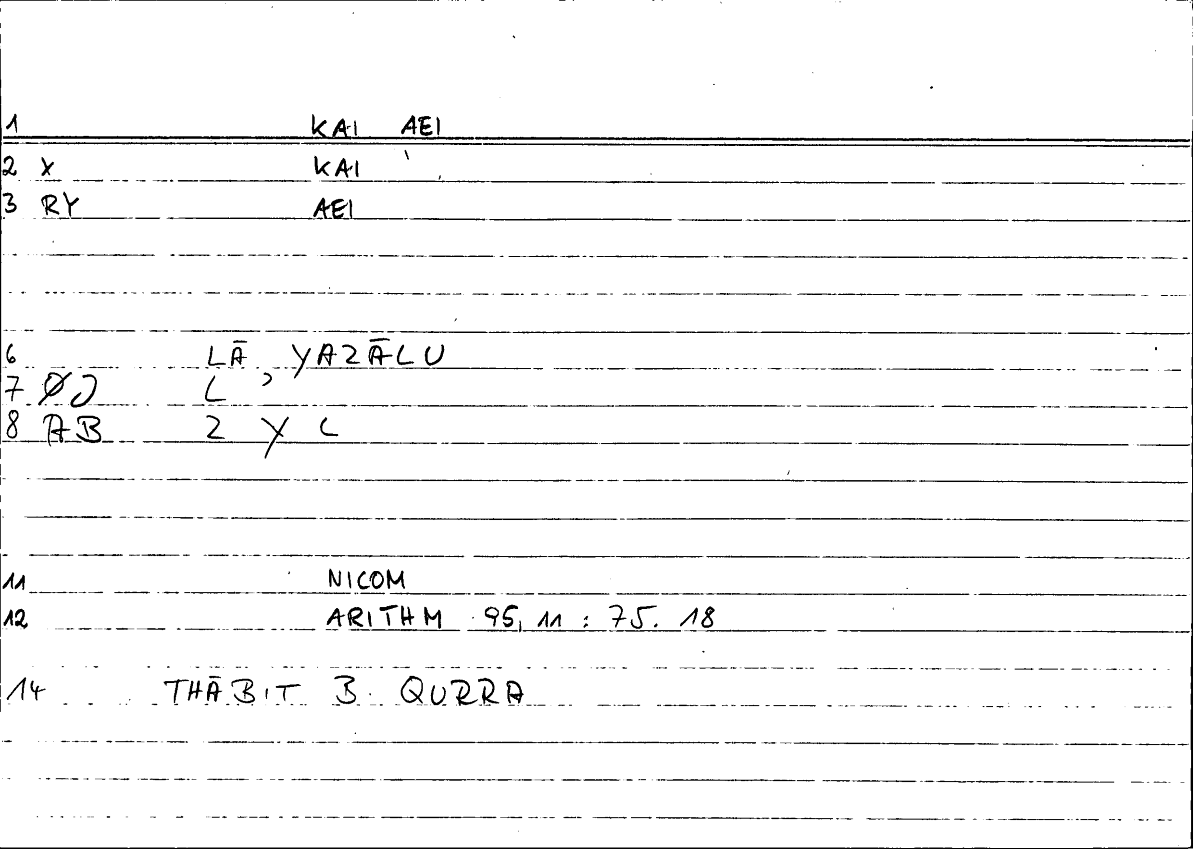 1 KAI AEI
2 X KAI
3 RY AEI
6 LĀ, YAZĀLU
7 ØJ L ,
8 AB Z Y L
11 NICOM
12 ARITHM 95, 11 : 75. 18
14 THĀBIT B. QURRA